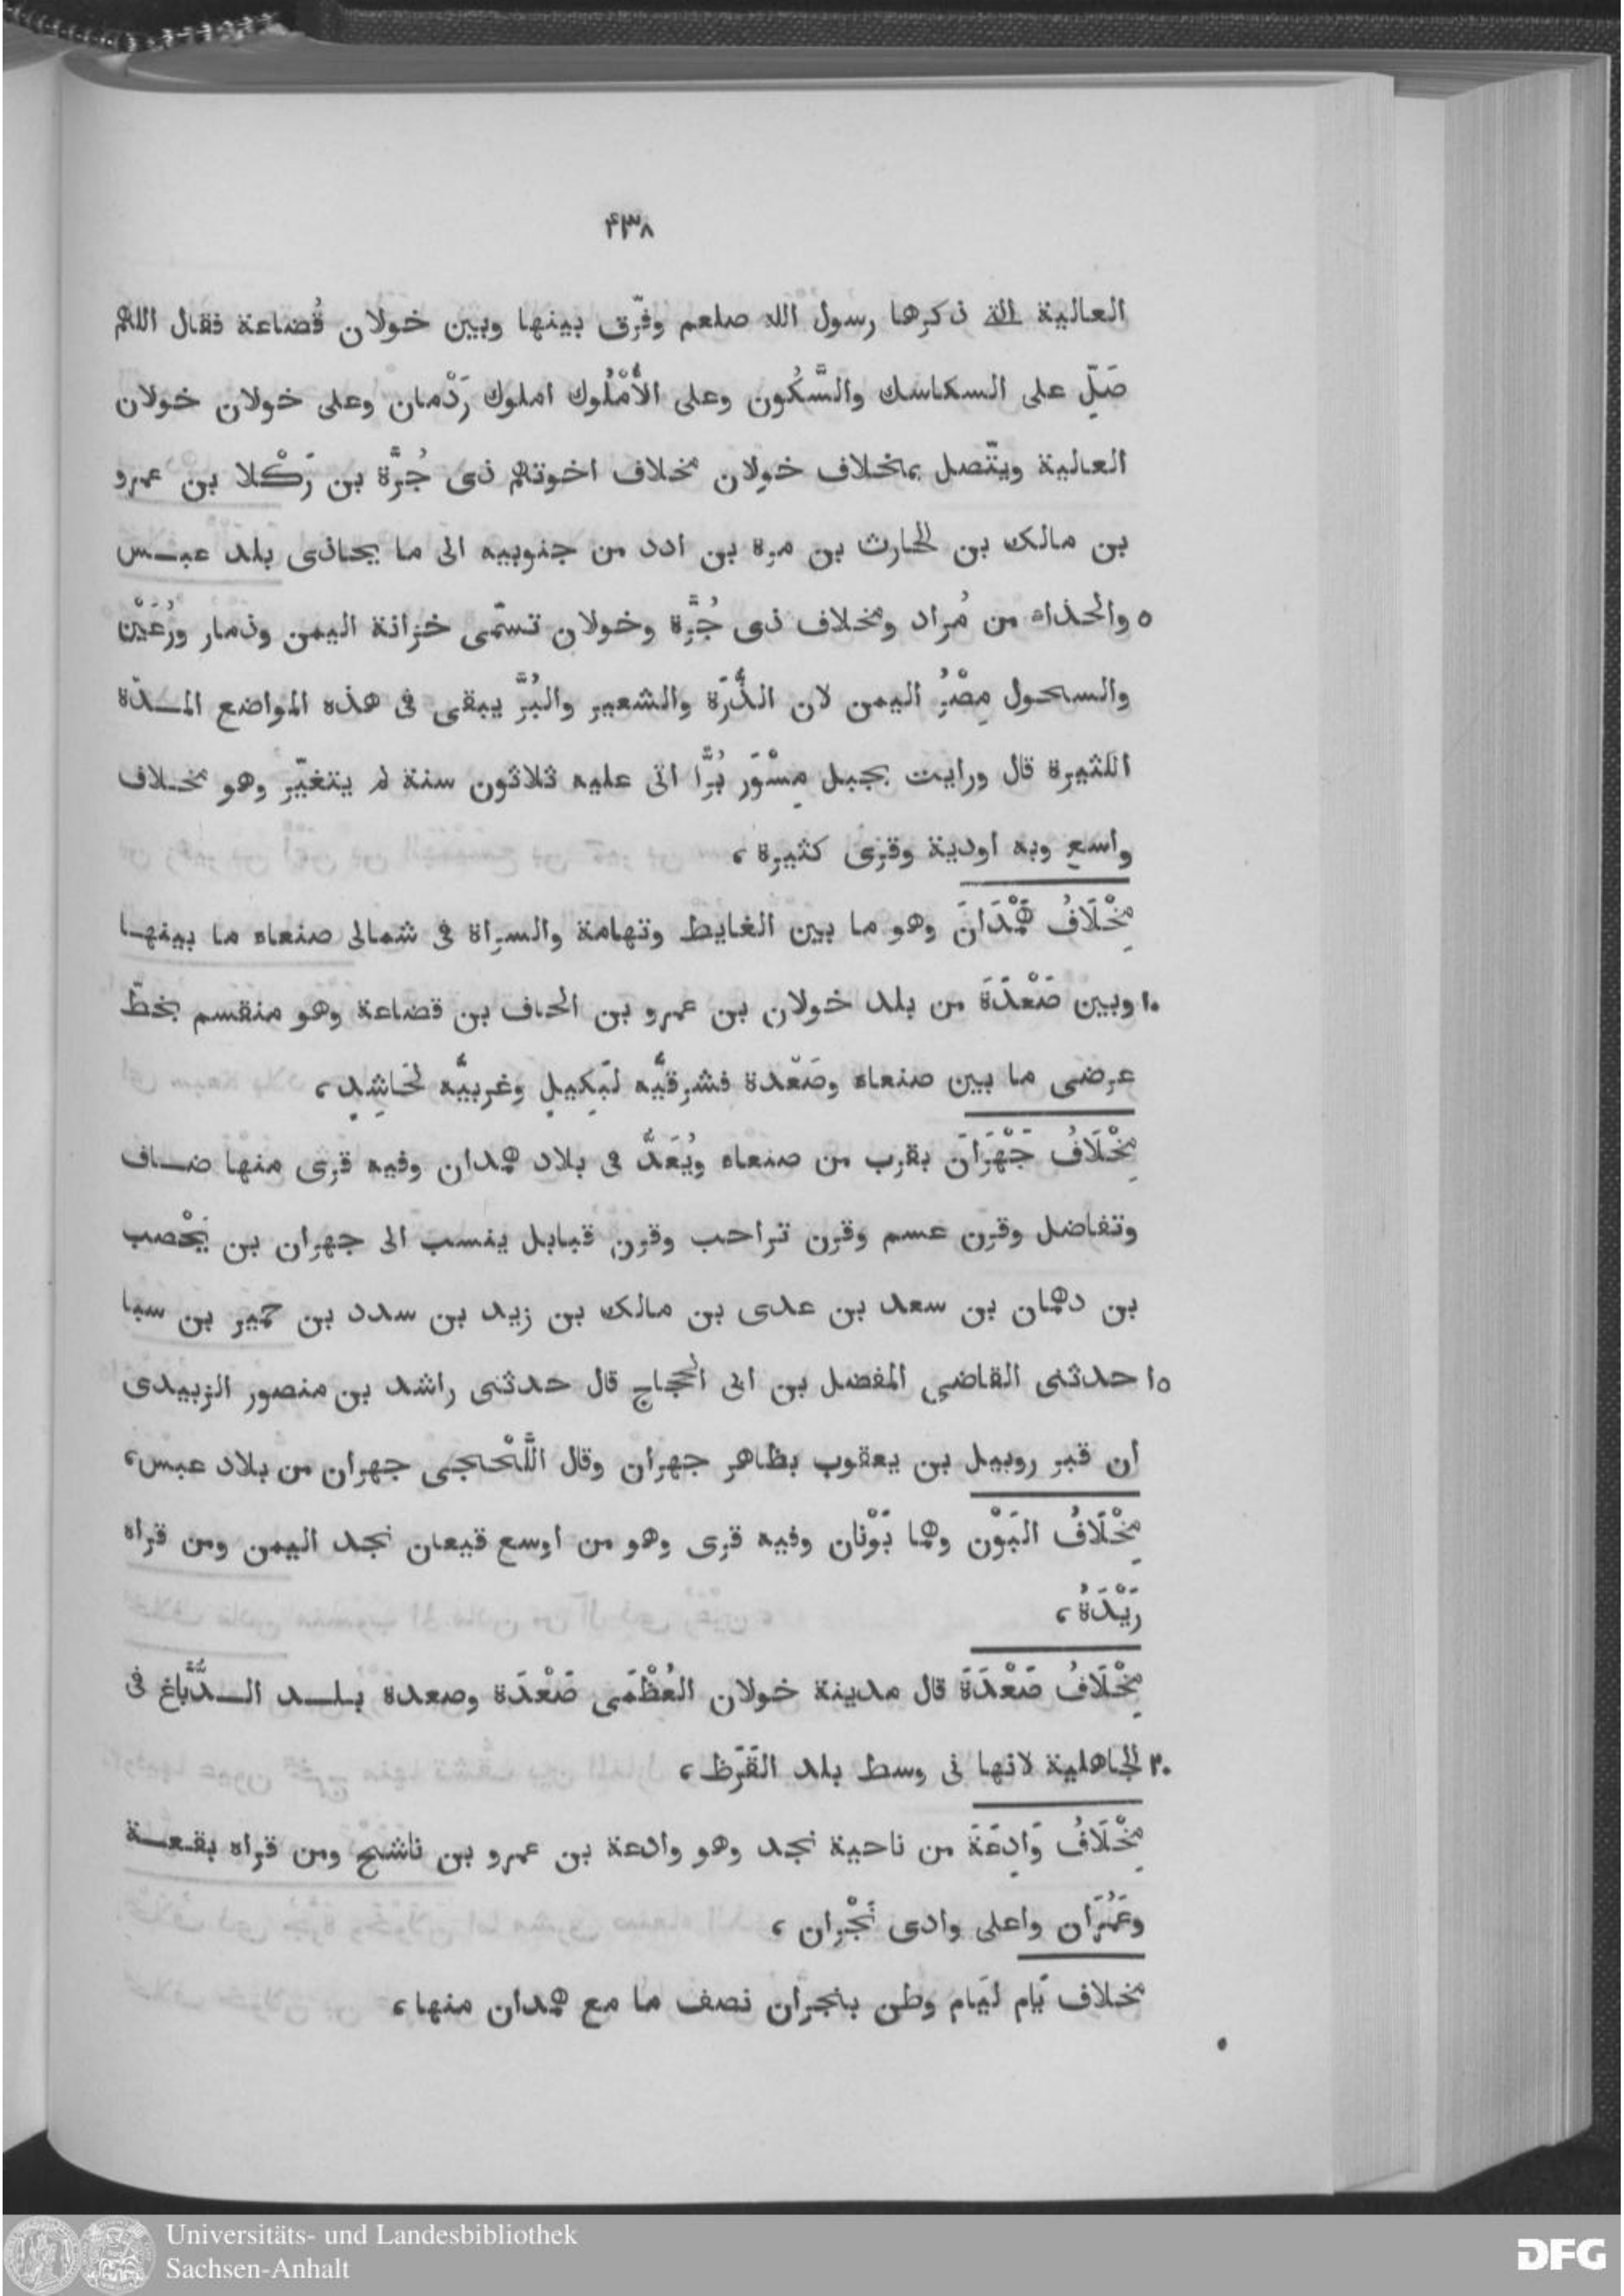 ۴۳۸
العالية الة ذكرها رسول الله صلعم وفرّق بينها وبين خولان قُضاعة فقال اللهم
صَلِّ على السكاسك والسَّكُون وعلى الأُمْلُوك املوك رَدْمان وعلى خولان خولان
العالية ويتّصل بمخلاف خولان مخلاف اخوتهم ذى جُرَّة بن رَكْلا بن عمرو
بن مالك بن الحارث بن مرة بن ادد من جنوبيه الى ما يحاذى بلد عبس
٥ والحذاء من مُراد ومخلاف ذى جُرَّة وخولان تسمّى خزانة اليمن وذمار ورُعَيْن
والسحول مِصْرُ اليمن لان الذُّرَة والشعير والبُرَّ يبقى فى هذه المواضع المدّة
الكثيرة قال ورايت بجبل مِسْوَر بُرًّا اتى عليه ثلاثون سنة لم يتغيّر وهو مخلاف
واسع وبه اودية وقرى كثيرة ،
مِخْلَافُ هَمْدَانَ وهو ما بين الغايط وتهامة والسراة فى شمالى صنعاء ما بينها
١٠ وبين صَعْدَةَ من بلد خولان بن عمرو بن الحاف بن قضاعة وهو منقسم بخطّ
عرضى ما بين صنعاء وصَعْدة فشرقيُّه لبَكِيلٍ وغربيُّه لحَاشِدٍ ،
مِخْلَافُ جَهْرَانَ بقرب من صنعاء ويُعَدُّ فى بلاد همدان وفيه قرى منها ضاف
وتفاضل وقرن عسم وقرن تراحب وقرن قبايل ينسب الى جهران بن يَحْصب
بن دهمان بن سعد بن عدى بن مالك بن زيد بن سدد بن حمير بن سبا
١٥ حدثنى القاضى المفضل بن ابى الحجاج قال حدثنى راشد بن منصور الزبيدى
ان قبر روبيل بن يعقوب بظاهر جهران وقال اللَّحْجى جهران من بلاد عبس ،
مِخْلَافُ البَوْنِ وهما بَوْنان وفيه قرى وهو من اوسع قيعان نجد اليمن ومن قراه
رَيْدَةُ ،
مِخْلَافُ صَعْدَةَ قال مدينة خولان العُظْمَى صَعْدَة وصعدة بلد الدُّبَّاغ فى
٢٠ الجاهلية لانها فى وسط بلد القَرَظ ،
مِخْلَافُ وَادِعَةَ من ناحية نجد وهو وادعة بن عمرو بن ناشج ومن قراه بقعة
وعَمُرَان واعلى وادى نَجْران ،
مخلاف يَام ليَام وطن بنجران نصف ما مع همدان منها ،
Universitäts- und Landesbibliothek
Sachsen-Anhalt
DFG